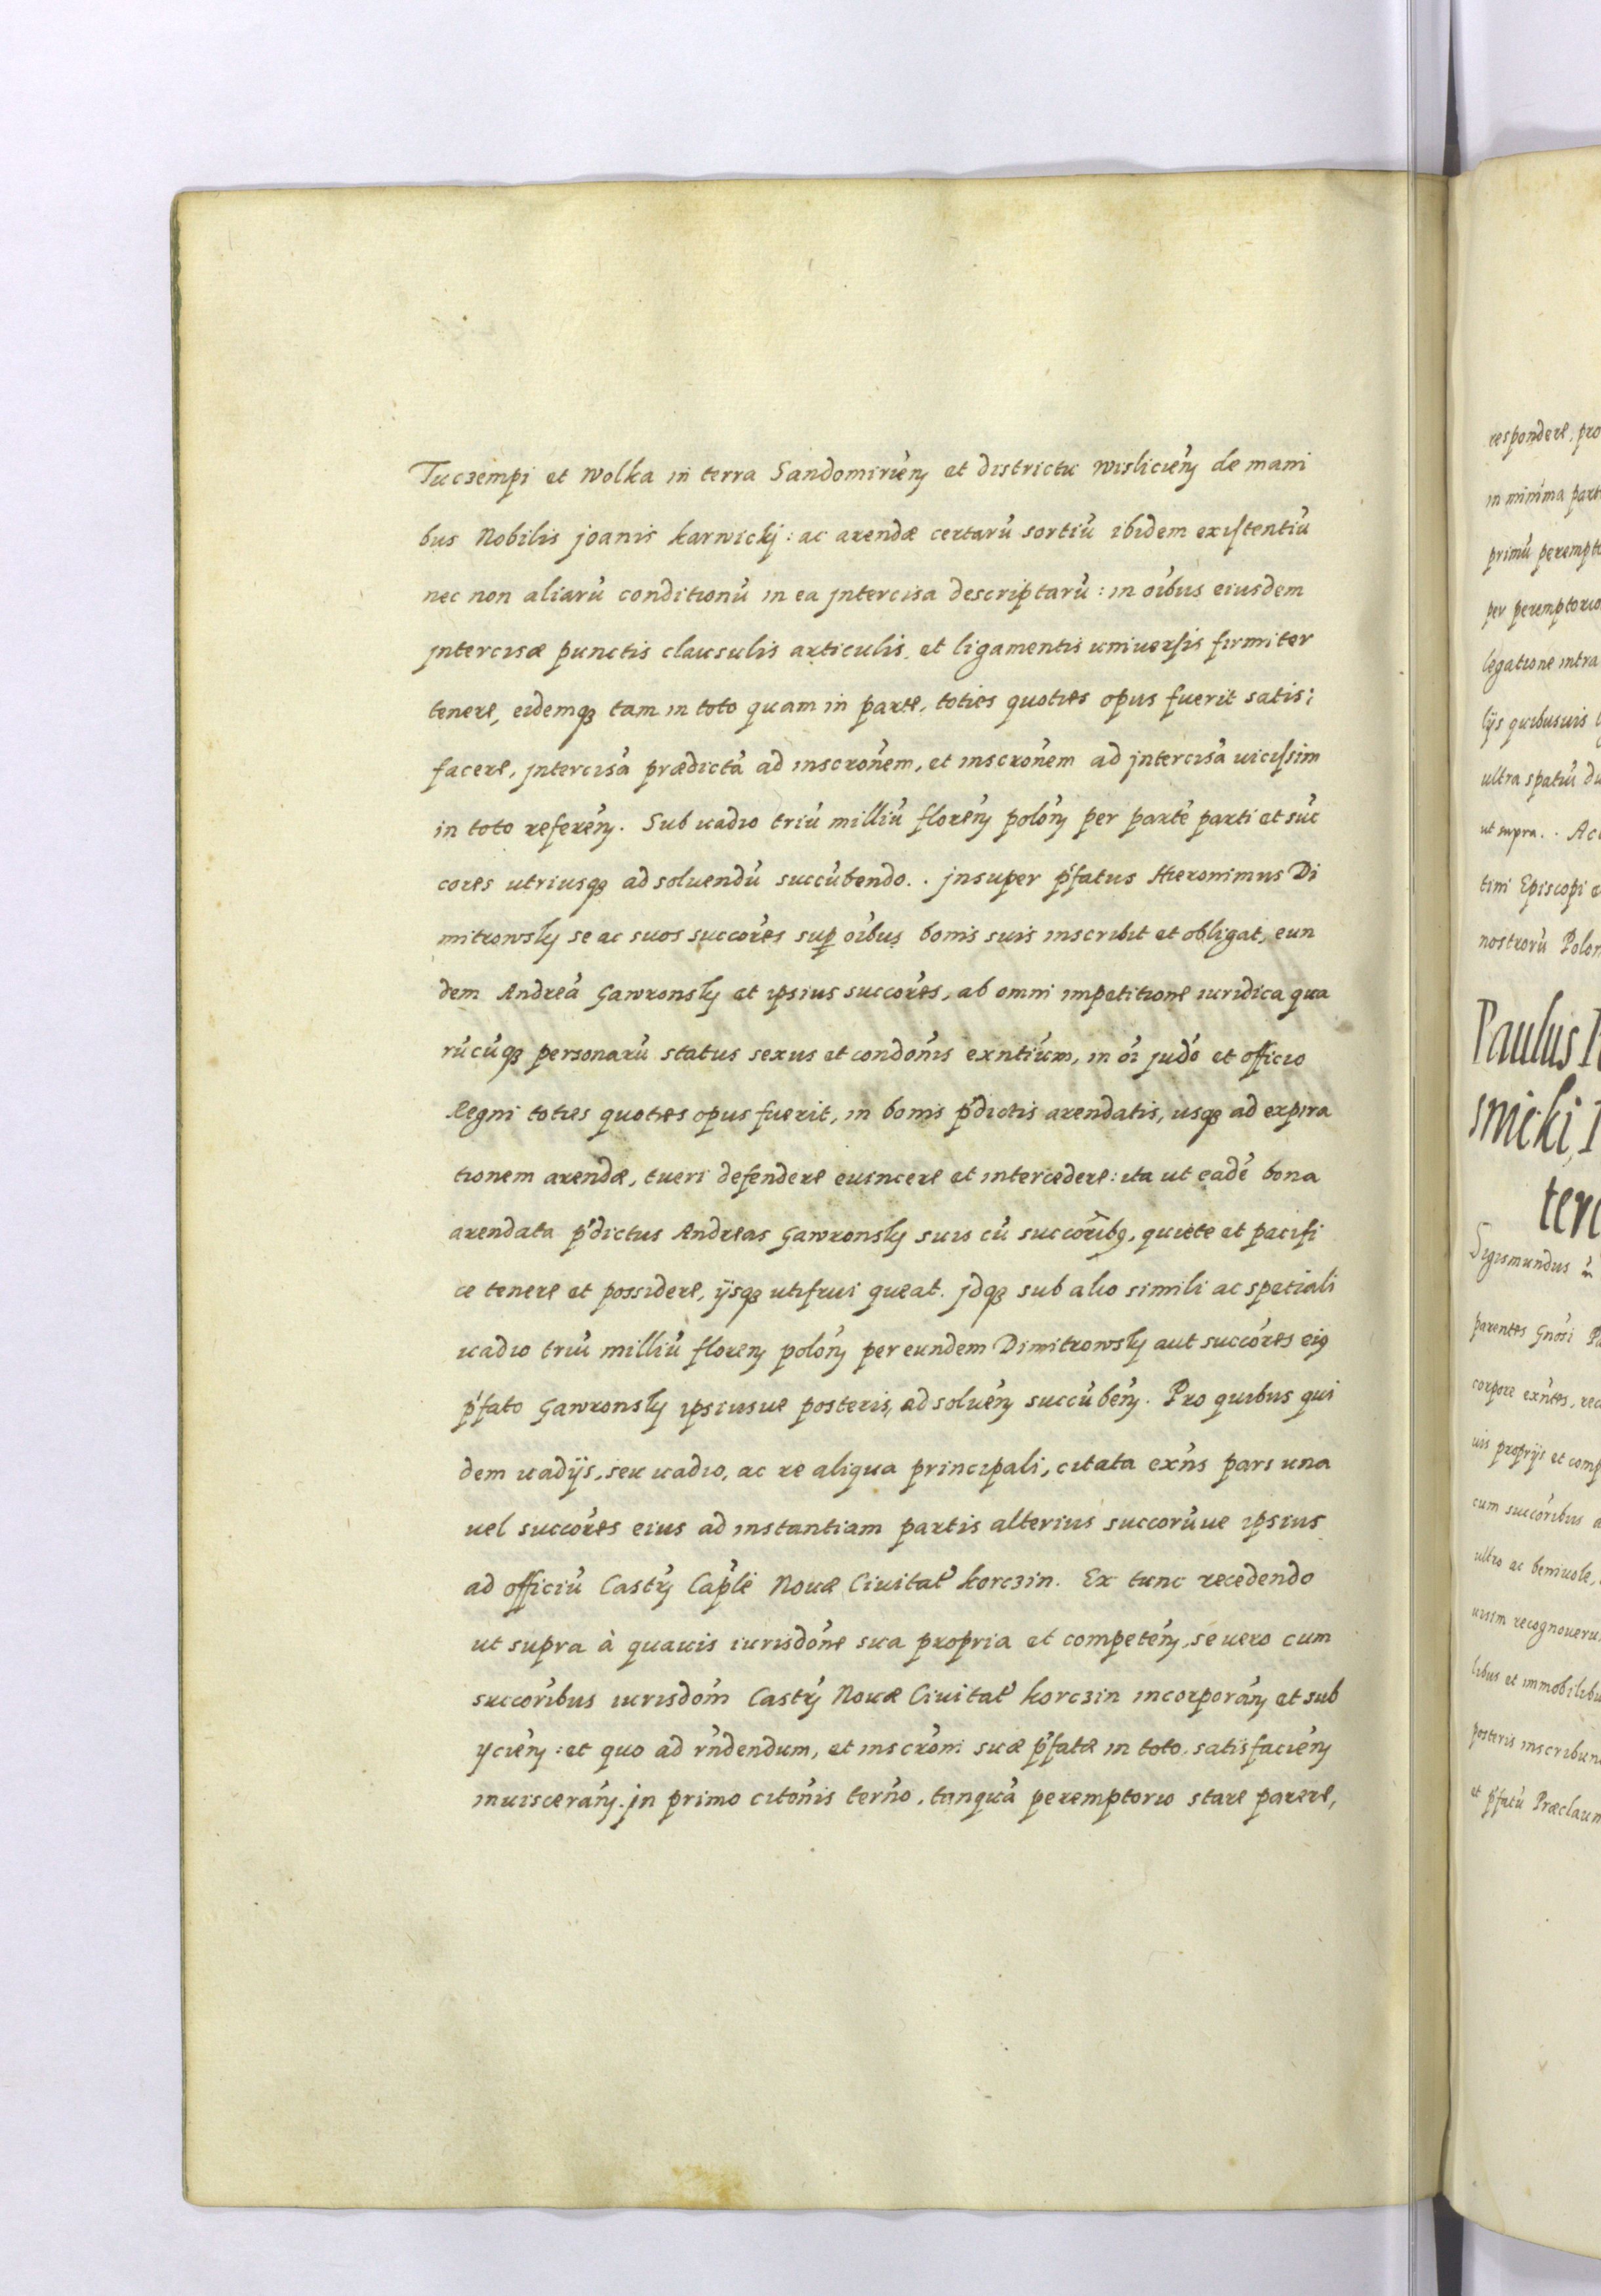 Tuczempi et Wolka in terra Sandomirień et districtu Wislicień de mani
bus Nobilis Joanis Karwickj: ac arendæ certarũ sortiũ ibidem existentiũ
nec non aliarũ conditionũ in ea jntercisa descriptarũ: in oĩbus eiusdem
jntercisæ punctis clausulis articulis et ligamentis universis firmiter
tenere, eidemqꝫ tam in toto quam in parte, toties quoties opus fuerit satis:
facere, jntercisã prædictã ad inscrõnem, et inscrõnem ad jntercisã uicissim
in toto referẽń. Sub uadio triũ milliũ florẽń polõń per partẽ parti et suc̃
cores utriusqꝫ ad soluendũ succũbendo.. Jnsuper p̃fatus Hieronimus Di
mitrowsky se ac suos succõres sup oĩbus bonis suis inscribit et obligat, eun
dem Andreã Gawronsky et ipsius succõres, ab omni impetitione iuridica qua
rũcũqꝫ personarũ status sexus et condõnis exñtiũm, in oĩ judõ et officio
Regni toties quoties opus fuerit, in bonis p̃dictis arendatis, usqꝫ ad expira
tionem arendæ, tueri defendere euincere et intercedere: ita ut eadẽ bona
arendata p̃dictus Andreas Gawronsky suis cũ succõribꝫ, quiete et pacifi
ce tenere et possidere, ijsqꝫ utifrui queat. Jdqꝫ sub alio simili ac speciali
uadio triũ milliũ floreń polõń per eundem Dimitrowsky aut succõres eiꝰ
p̃fato Gawronsky ipsiusue posteris, ad soluẽń succũbẽń. Pro quibus qui
dem uadijs, seu uadio, ac re aliqua principali, citata exñs pars una
uel succõres eius ad instantiam partis alterius succorũue ipsius
ad officiũ Castrj̃ Capl̃e Nouæ Ciuitat̃ Korczin. Ex tunc recedendo
ut supra à quauis iurisdõne sua propria et competẽń, se uero cum
succõribus iurisdõni Castrj̃ Nouæ Ciuitat̃ Korczin incorporãń et sub
ycień: et quo ad rñdendum, et inscrõni suæ p̃fatæ in toto satisfacień
inuiscerãń. Jn primo citõnis terño, tanquã peremptorio stare parere,
respondere, pro
in minima part
primũ perempto
per peremptorio
legatione intra
lijs quibusuis
ultra spatiũ du
ut supra.. Ac
tini Episcopi e
nostrorũ Polon
Paulus
smicki,
terc
Sigismundus
parentes Gnõsi Pa
corpore exñtes, rec
uis proprijs et comp
cum succõribus a
ultro ac beniuole,
uisim recognoueru
libus et immobilibu
posteris inscribun
et p̃fatũ Præclarum